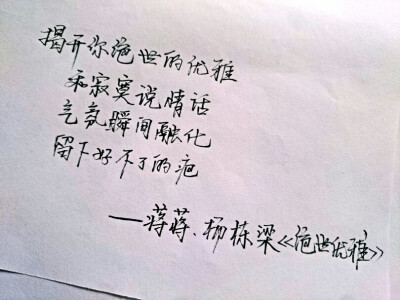 揭开你绝世的优雅
和寂寞说情话
气氛瞬间融化
留下好不了的疤
——蒋蒋、杨栋梁《绝世优雅》